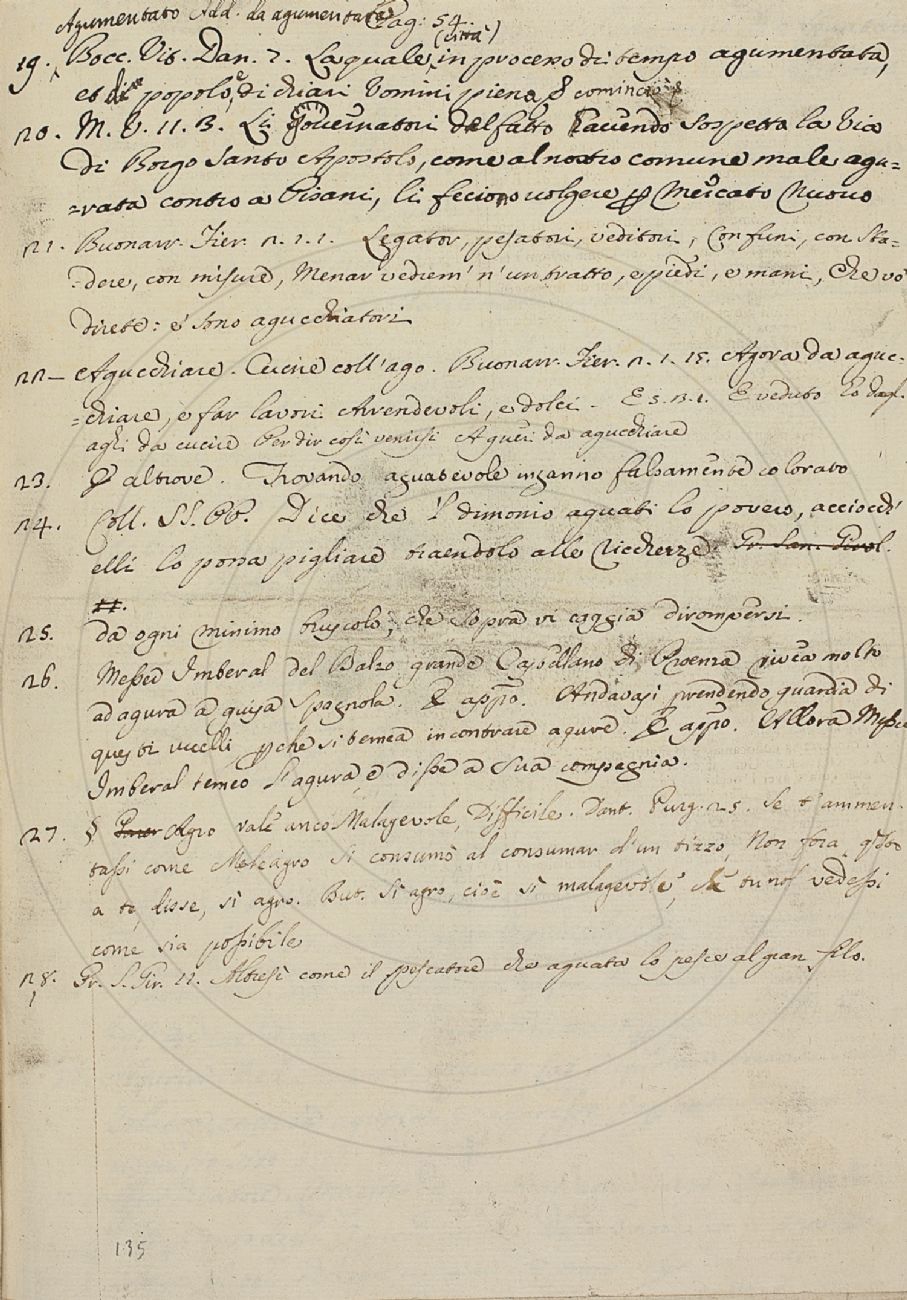 Agumentato Add. da agumentare Pag: 54.
(città)
19. Bocc. Vit. Dan. 7. La quale, in processo di tempo agumentata,
et di popolo, di chiari Uomini piena, & cominciò &
20. M. V. 11. 3. Li Governatori del fatto Havendo Sospetta la Via
di Borgo Santo Apostolo, come al nostro comune male agu=
=rata contro a Pisani, li feciono volgere p Mercato Nuovo
21. Buonarr. Fier. 2. 1. 1. Legator, pesatori, veditori, Con funi, con Sta=
=dere, con misure, Menar vedrem' n' un tratto, e piedi, e mani, Che vo'
direte: e' sono agucchiatori
22 – Agucchiare. Cucire coll'ago. Buonarr. Fier. 2. 1. 15. Agora da aguc=
=chiare, e far lavori Arrendevoli, e dolci. E 5. 3. 1. E veduto ho dagl.
aghi da cucire Per dir così venirsi A quei da agucchiare
23. & altrove. Trovando aguatevole inganno falsamente colorato
24. Coll. SS. PP. Dice che 'l dimonio aguati lo povero, acciocch'
elli lo possa pigliare traendolo alle Ricchezze.
25. da ogni minimo bruscolo, che Sopra vi caggia dirompersi.
26. Messer Imberal del Balzo grande Castellano di Proenza vivea molto
ad agura a guisa Spagnola. E appo. Andavasi prendendo guardia di
questi uccelli p che si temea incontrare agure. E appo. Allora Messer
Imberal temeo l'agura, e disse a Sua compagnia.
27. § Agro vale anco Malagevole, Difficile. Dant. Purg. 25. Se t'ammen-
tassi come Meleagro Si consumò al consumar d'un tizzo, Non fora, qsto
a te, disse, sì agro. But. Sì agro, cioè sì malagevole, che tu nol vedessi
come sia possibile
28. Gr. S. Gir. 12. Altresì come il pescatore che aguata lo pesce al gran filo.
135